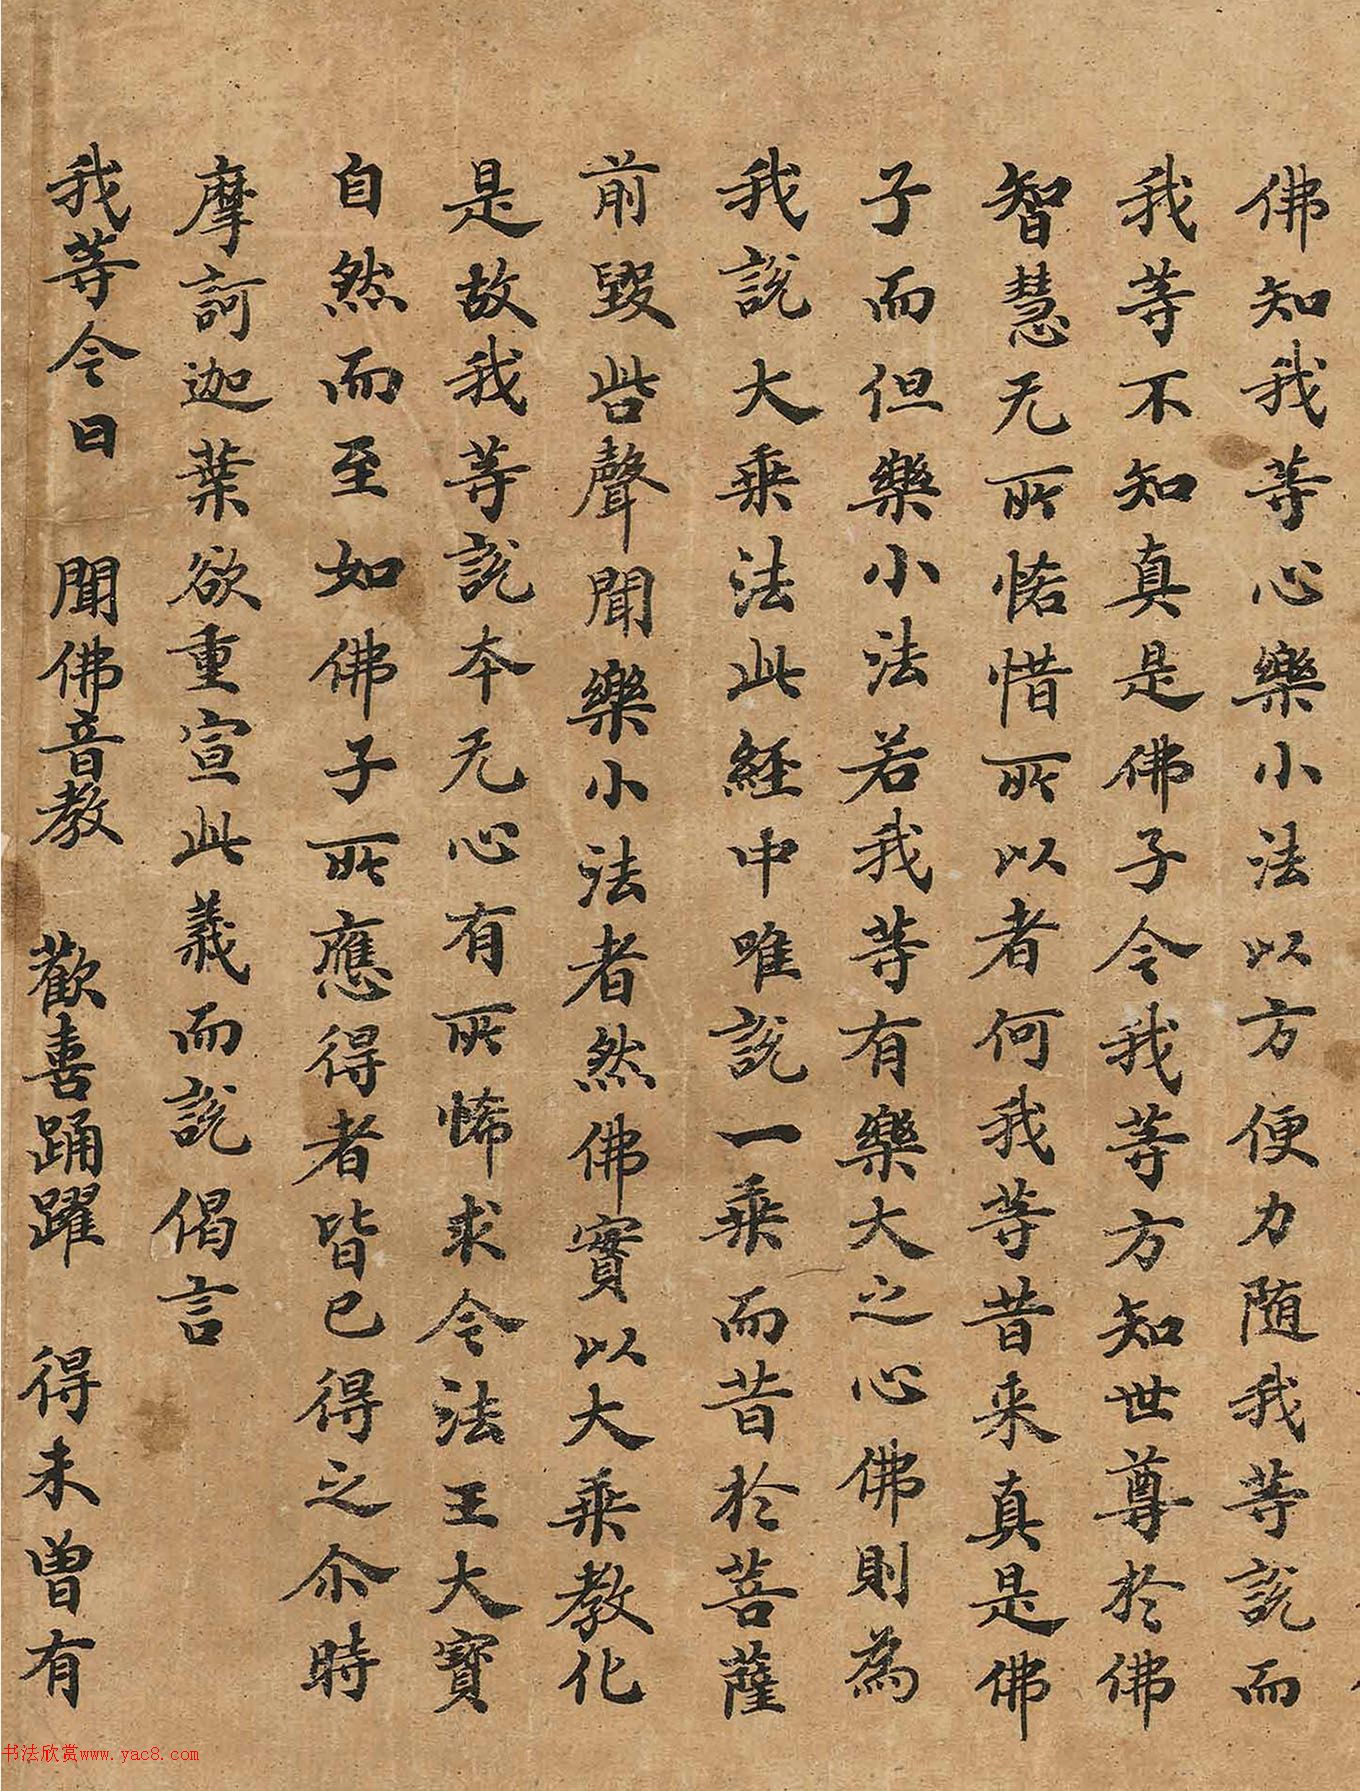 佛知我等心樂小法以方便力随我等説而
我等不知真是佛子今我等方知世尊於佛
智慧无所悋惜所以者何我等昔来真是佛
子而但樂小法若我等有樂大之心佛則為
我説大乗法此經中唯説一乗而昔於菩薩
前毀呰聲聞樂小法者然佛實以大乗教化
是故我等説本无心有所悕求今法王大寶
自然而至如佛子所應得者皆已得之尒時
摩訶迦葉欲重宣此義而説偈言
我等今日 聞佛音教 歡喜踊躍 得未曾有
书法欣赏www.yac8.com